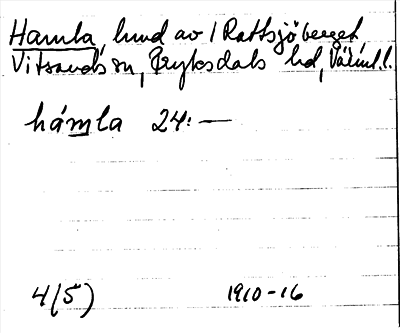 Hamla, hund av 1 Rattsjöberget
Vitsands sn, Fryksdals hd, Värml.l.
hámla 24: —
4(5) 1910-16